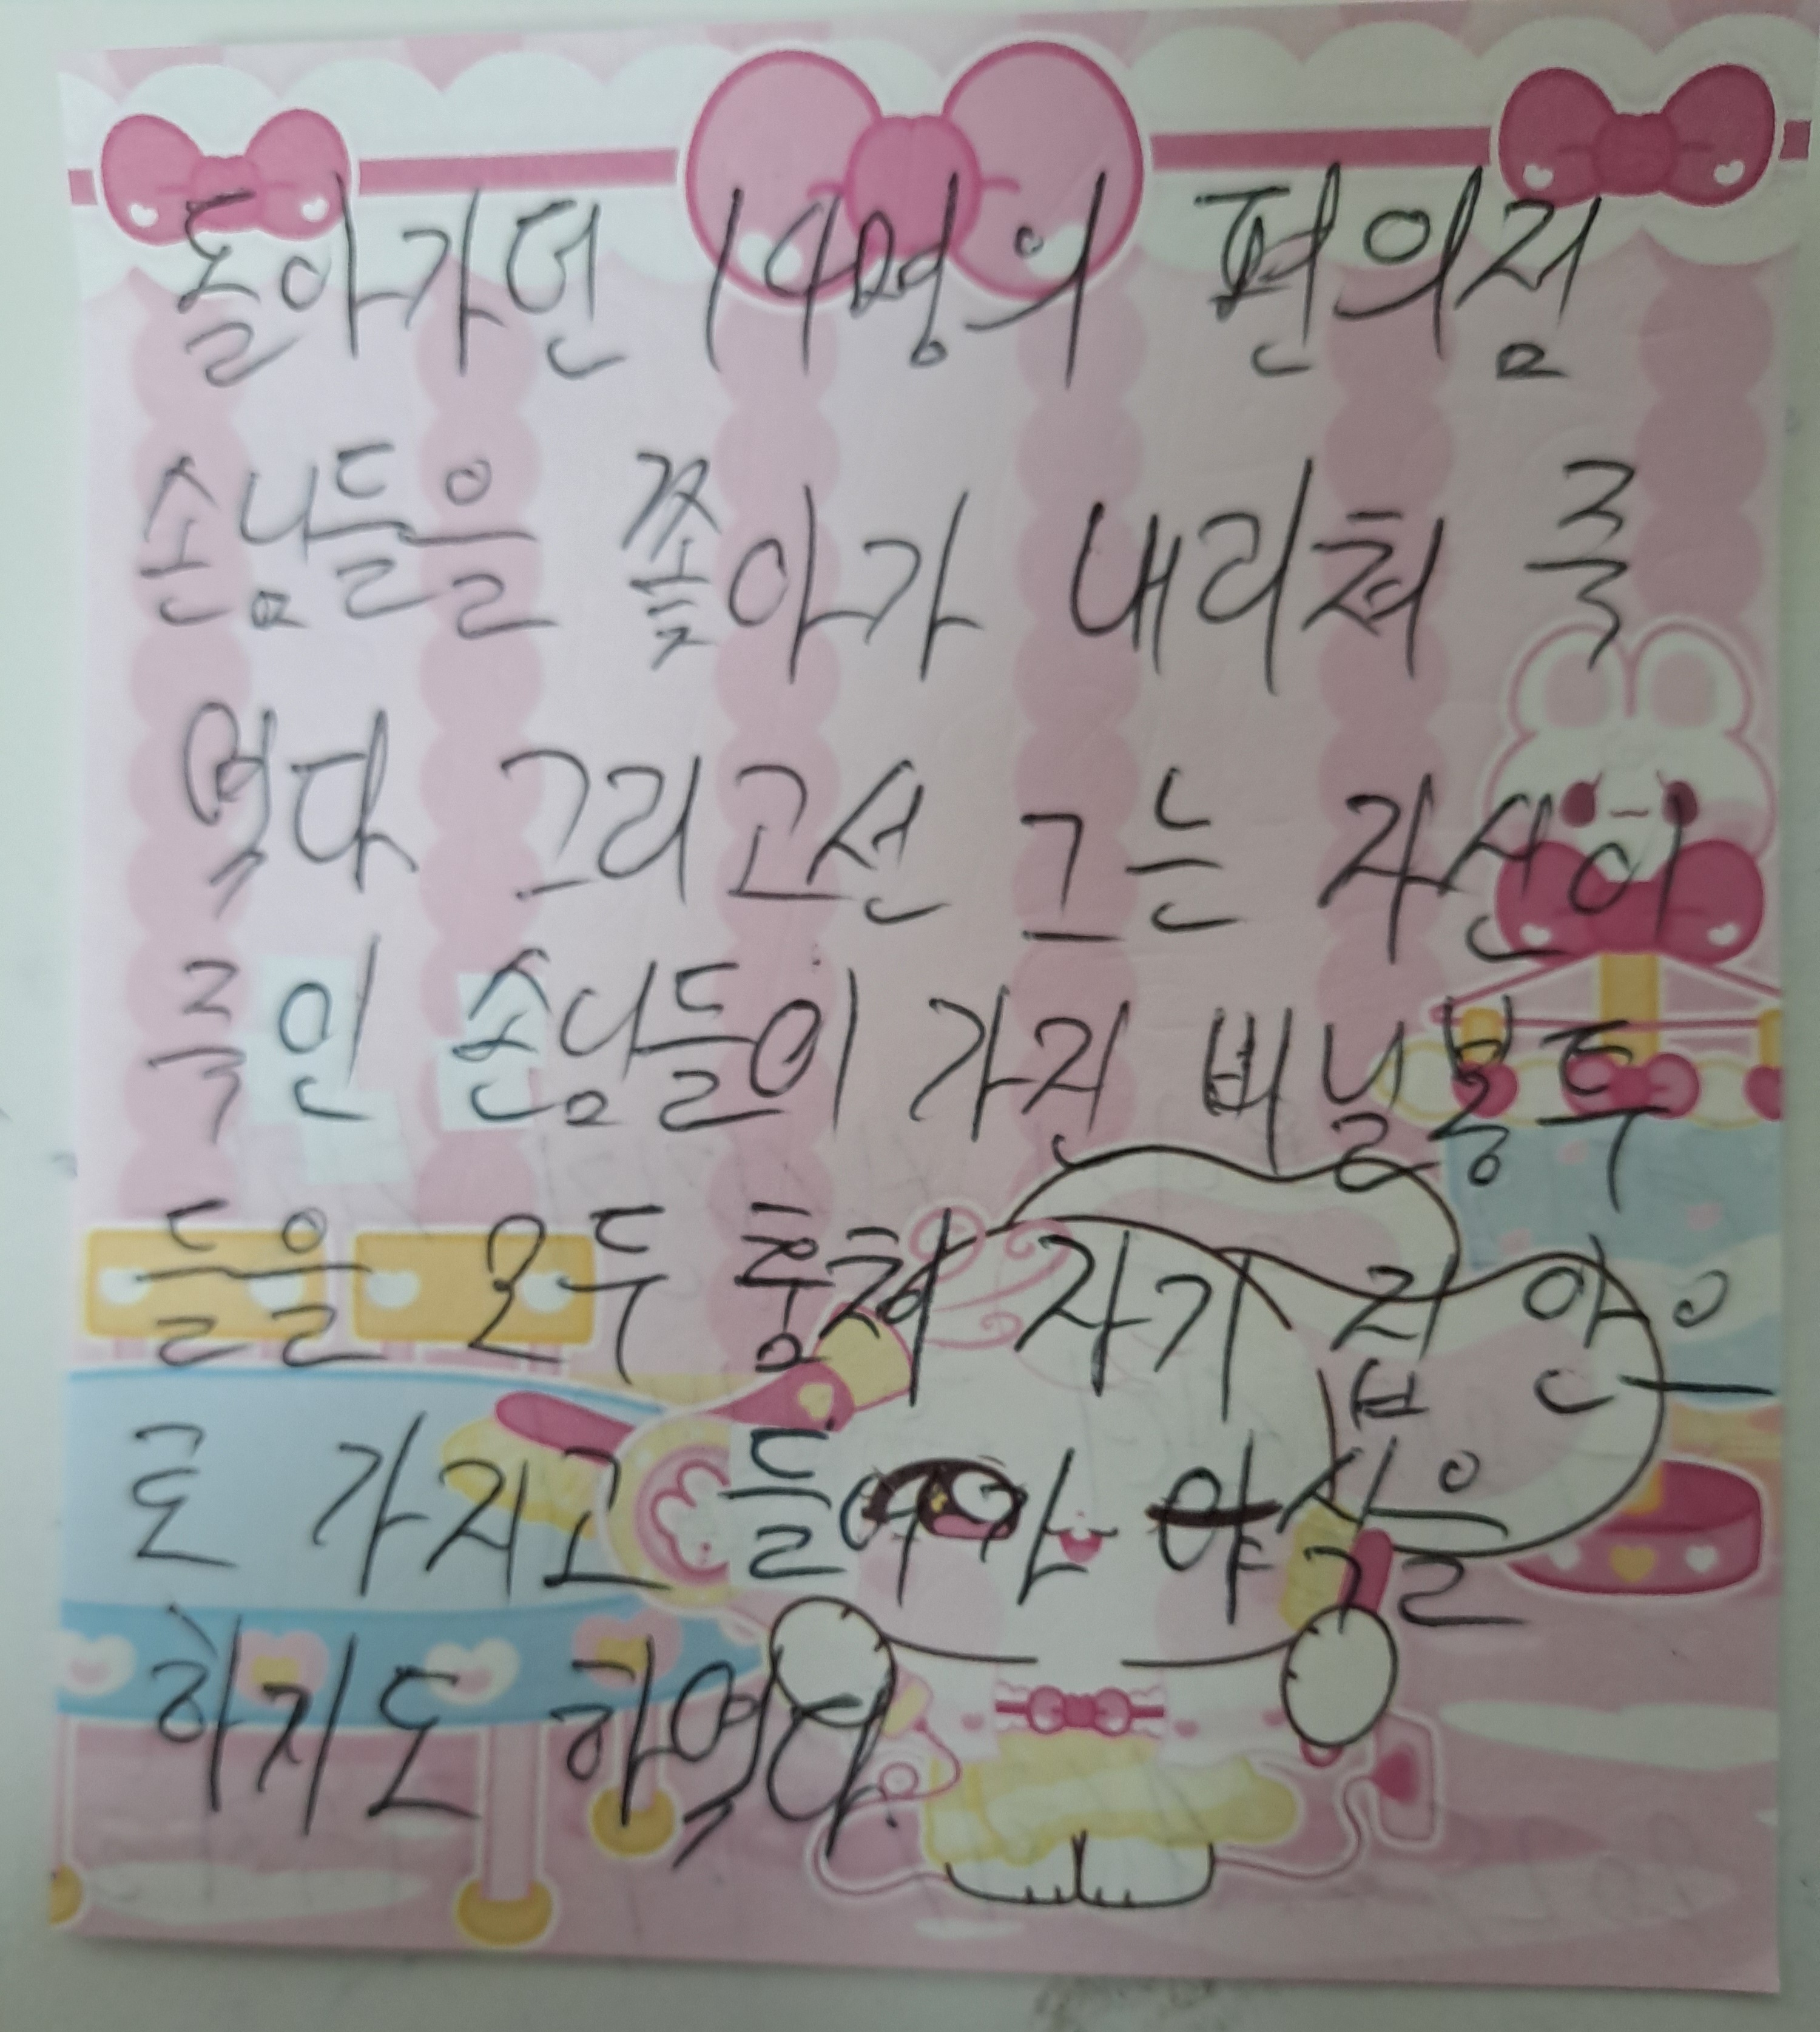 돌아가던 14명의 편의점
손님들을 쫓아가 내리쳐 죽
엿다 그리고선 그는 자신이
죽인 손님들이 가진 비닐봉투
들을 모두 훔쳐 자기 집 안으
로 가지고 들어가 야식을
하기도 하엿다.